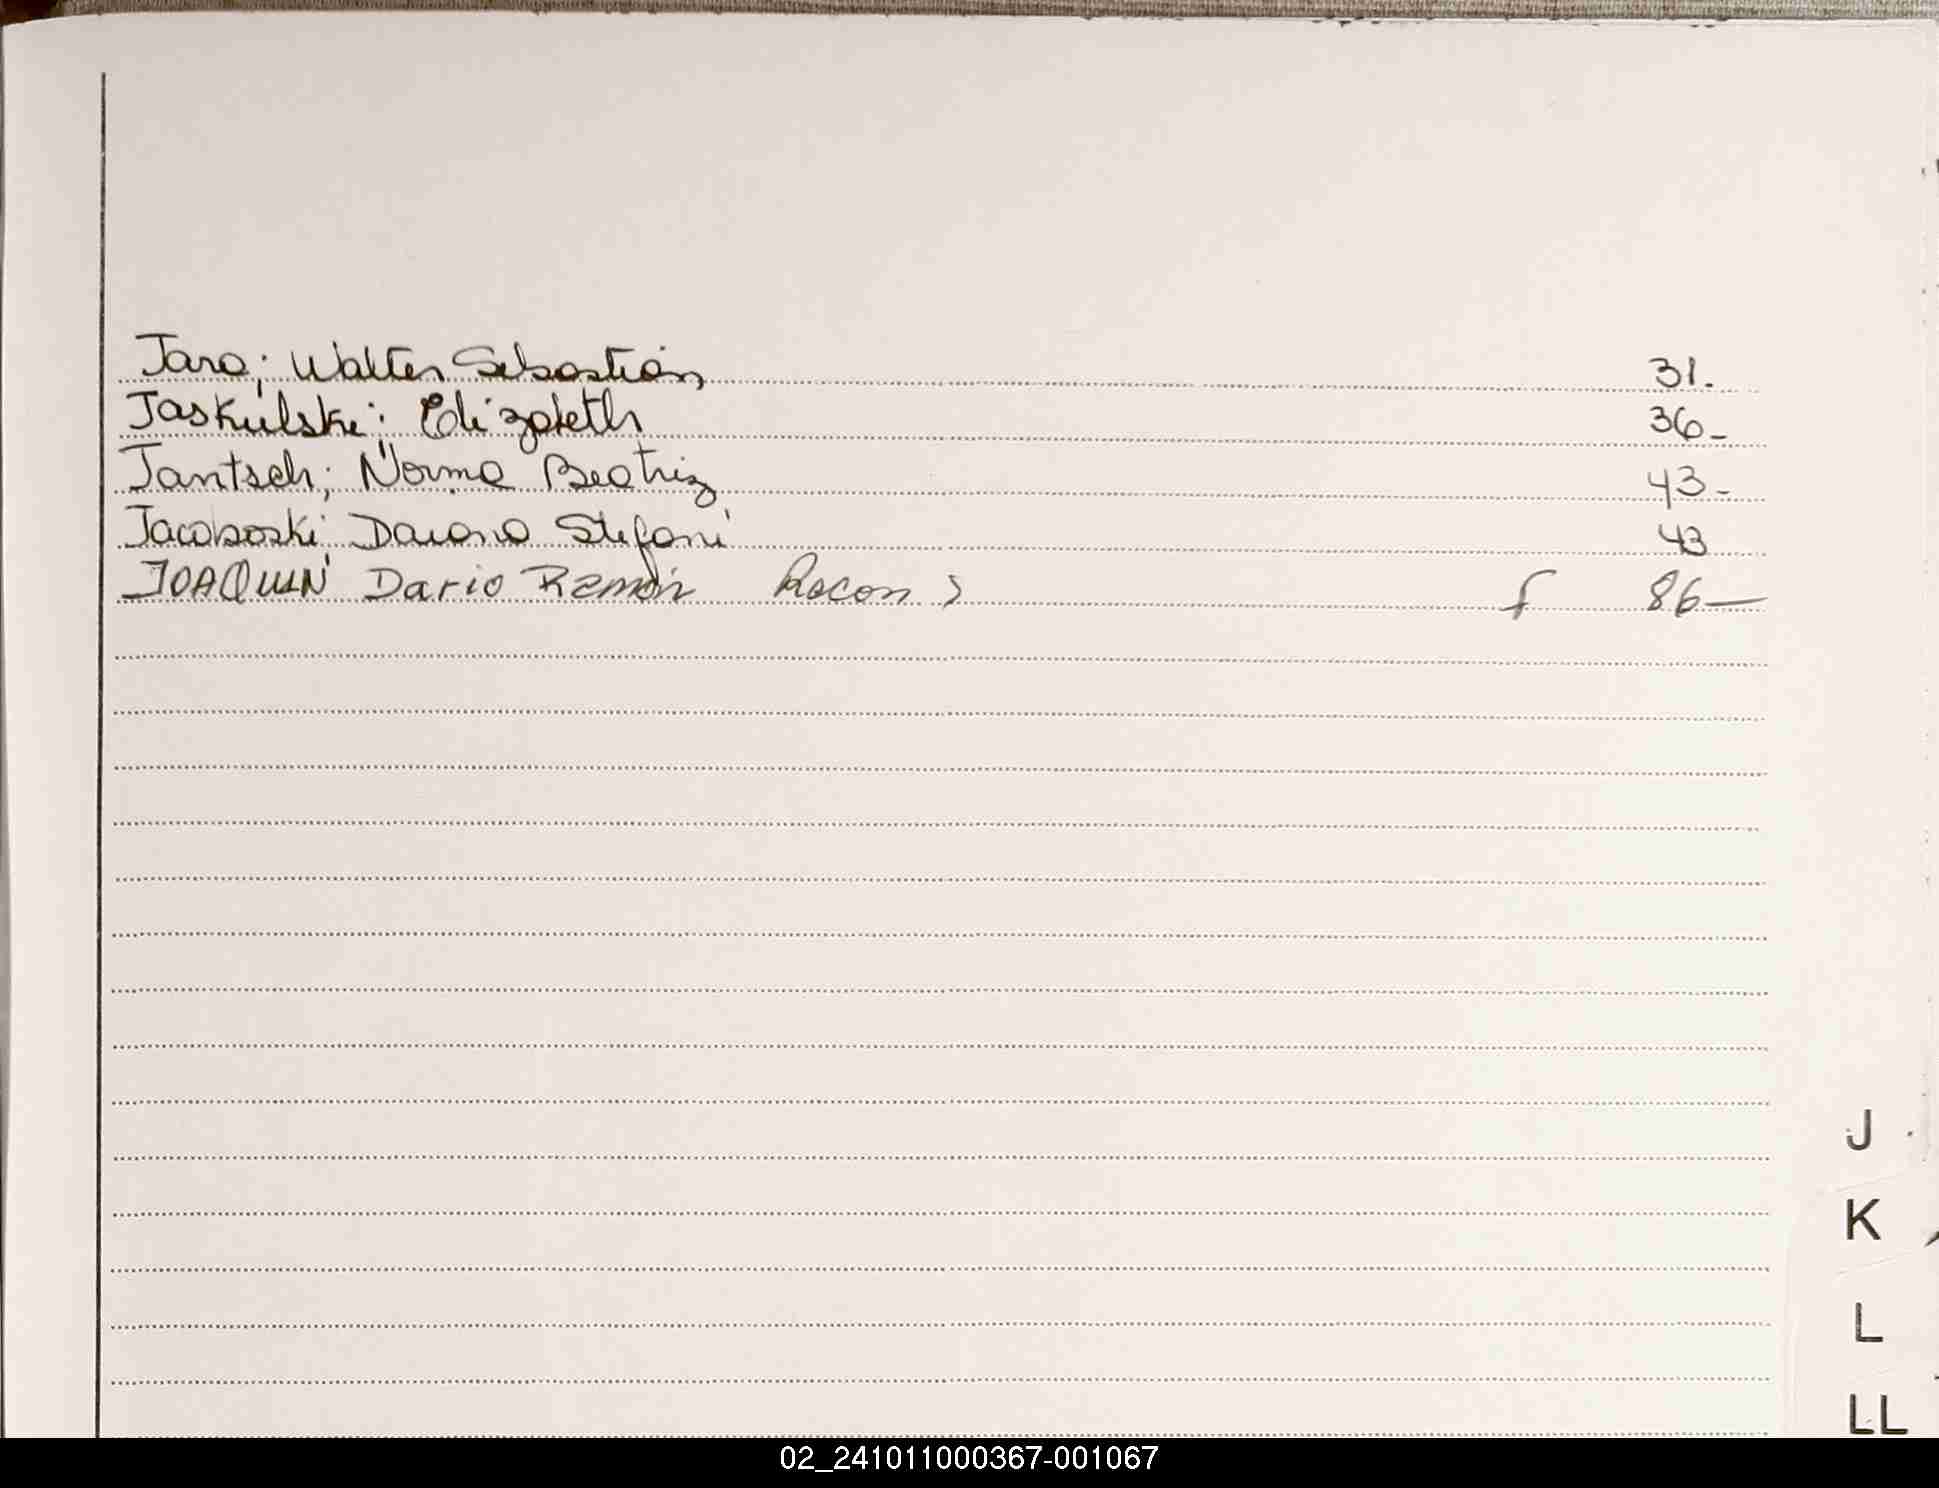 Jara; Walter Sebastián 31.
Jaskulski; Elizabeth 36-
Jantsch; Norma Beatriz 43-
Jacoboski; Daiana Stefani 43
JOAQUIN Dario Ramón Recon f 86-
J
K
L
LL
02_241011000367-001067